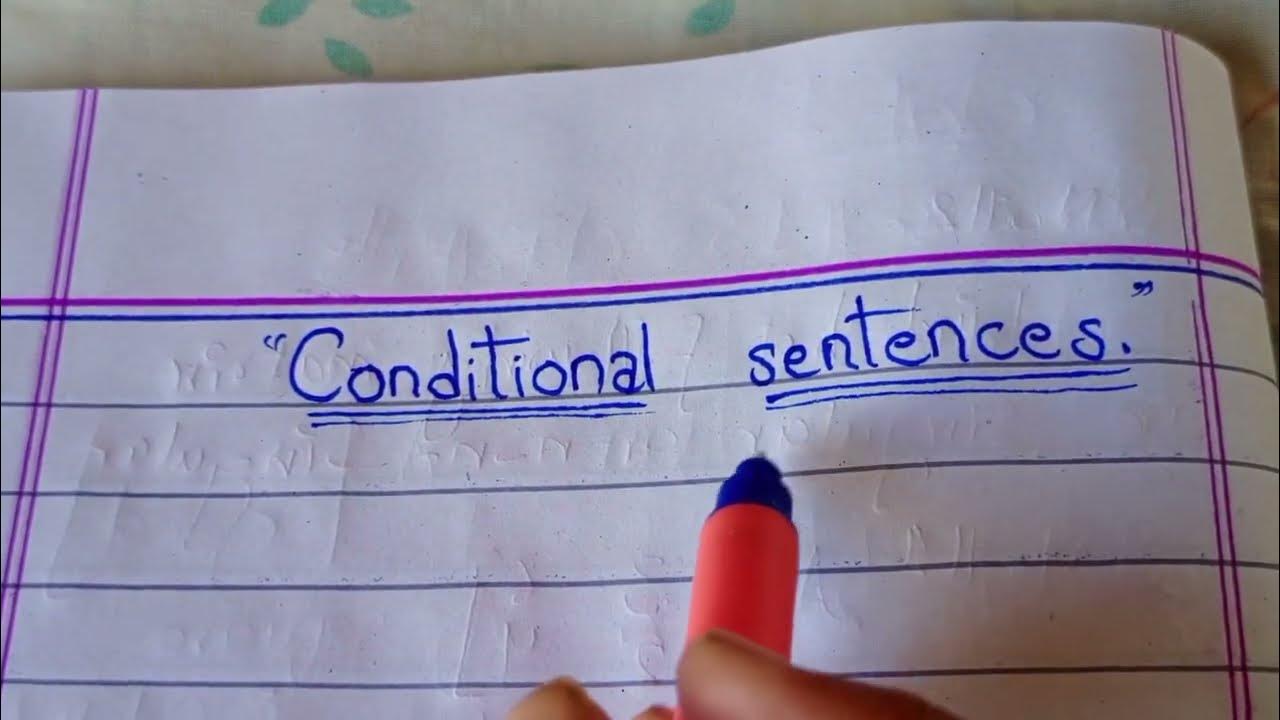 “Conditional sentences.”